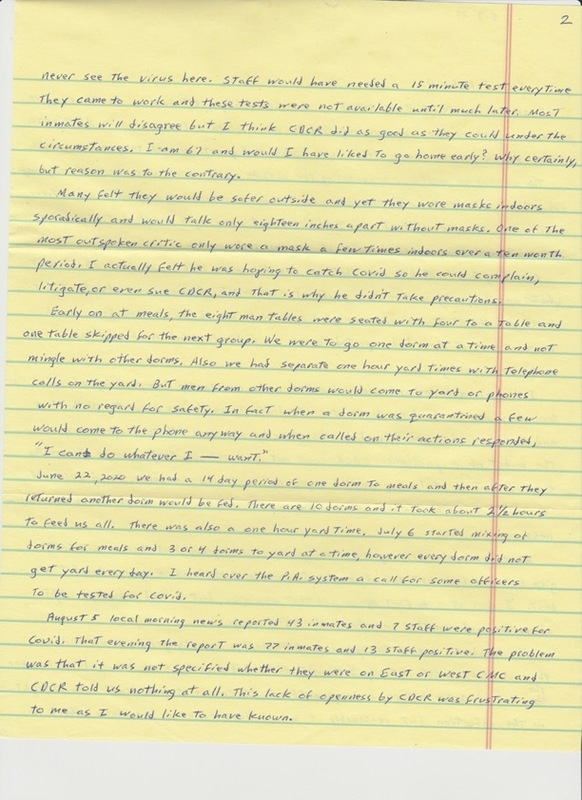 2
never see the virus here. Staff would have needed a 15 minute test everytime
they came to work and these tests were not available until much later. Most
inmates will disagree but I think CDCR did as good as they could under the
circumstances. I am 67 and would I have liked to go home early? Why certainly,
but reason was to the contrary.
Many felt they would be safer outside and yet they wore masks indoors
sporadically and would talk only eighteen inches apart without masks. One of the
most outspoken critic only wore a mask a few times indoors over a ten month
period. I actually felt he was hoping to catch Covid so he could complain,
litigate, or even sue CDCR, and that is why he didn't take precautions.
Early on at meals, the eight man tables were seated with four to a table and
one table skipped for the next group. We were to go one dorm at a time and not
mingle with other dorms. Also we had separate one hour yard times with telephone
calls on the yard. But men from other dorms would come to yard or phones
with no regard for safety. In fact when a dorm was quarantined a few
would come to the phone anyway and when called on their actions responded,
"I can do whatever I — want."
June 22, 2020 we had a 14 day period of one dorm to meals and then after they
returned another dorm would be fed. There are 10 dorms and it took about 2 1/2 hours
to feed us all. There was also a one hour yard time. July 6 started mixing of
dorms for meals and 3 or 4 dorms to yard at a time, however every dorm did not
get yard every day. I heard over the P.A. system a call for some officers
to be tested for covid.
August 5 local morning news reported 43 inmates and 7 staff were positive for
Covid. That evening the report was 77 inmates and 13 staff positive. The problem
was that it was not specified whether they were on East or West CMC and
CDCR told us nothing at all. This lack of openness by CDCR was frustrating
to me as I would like to have known.